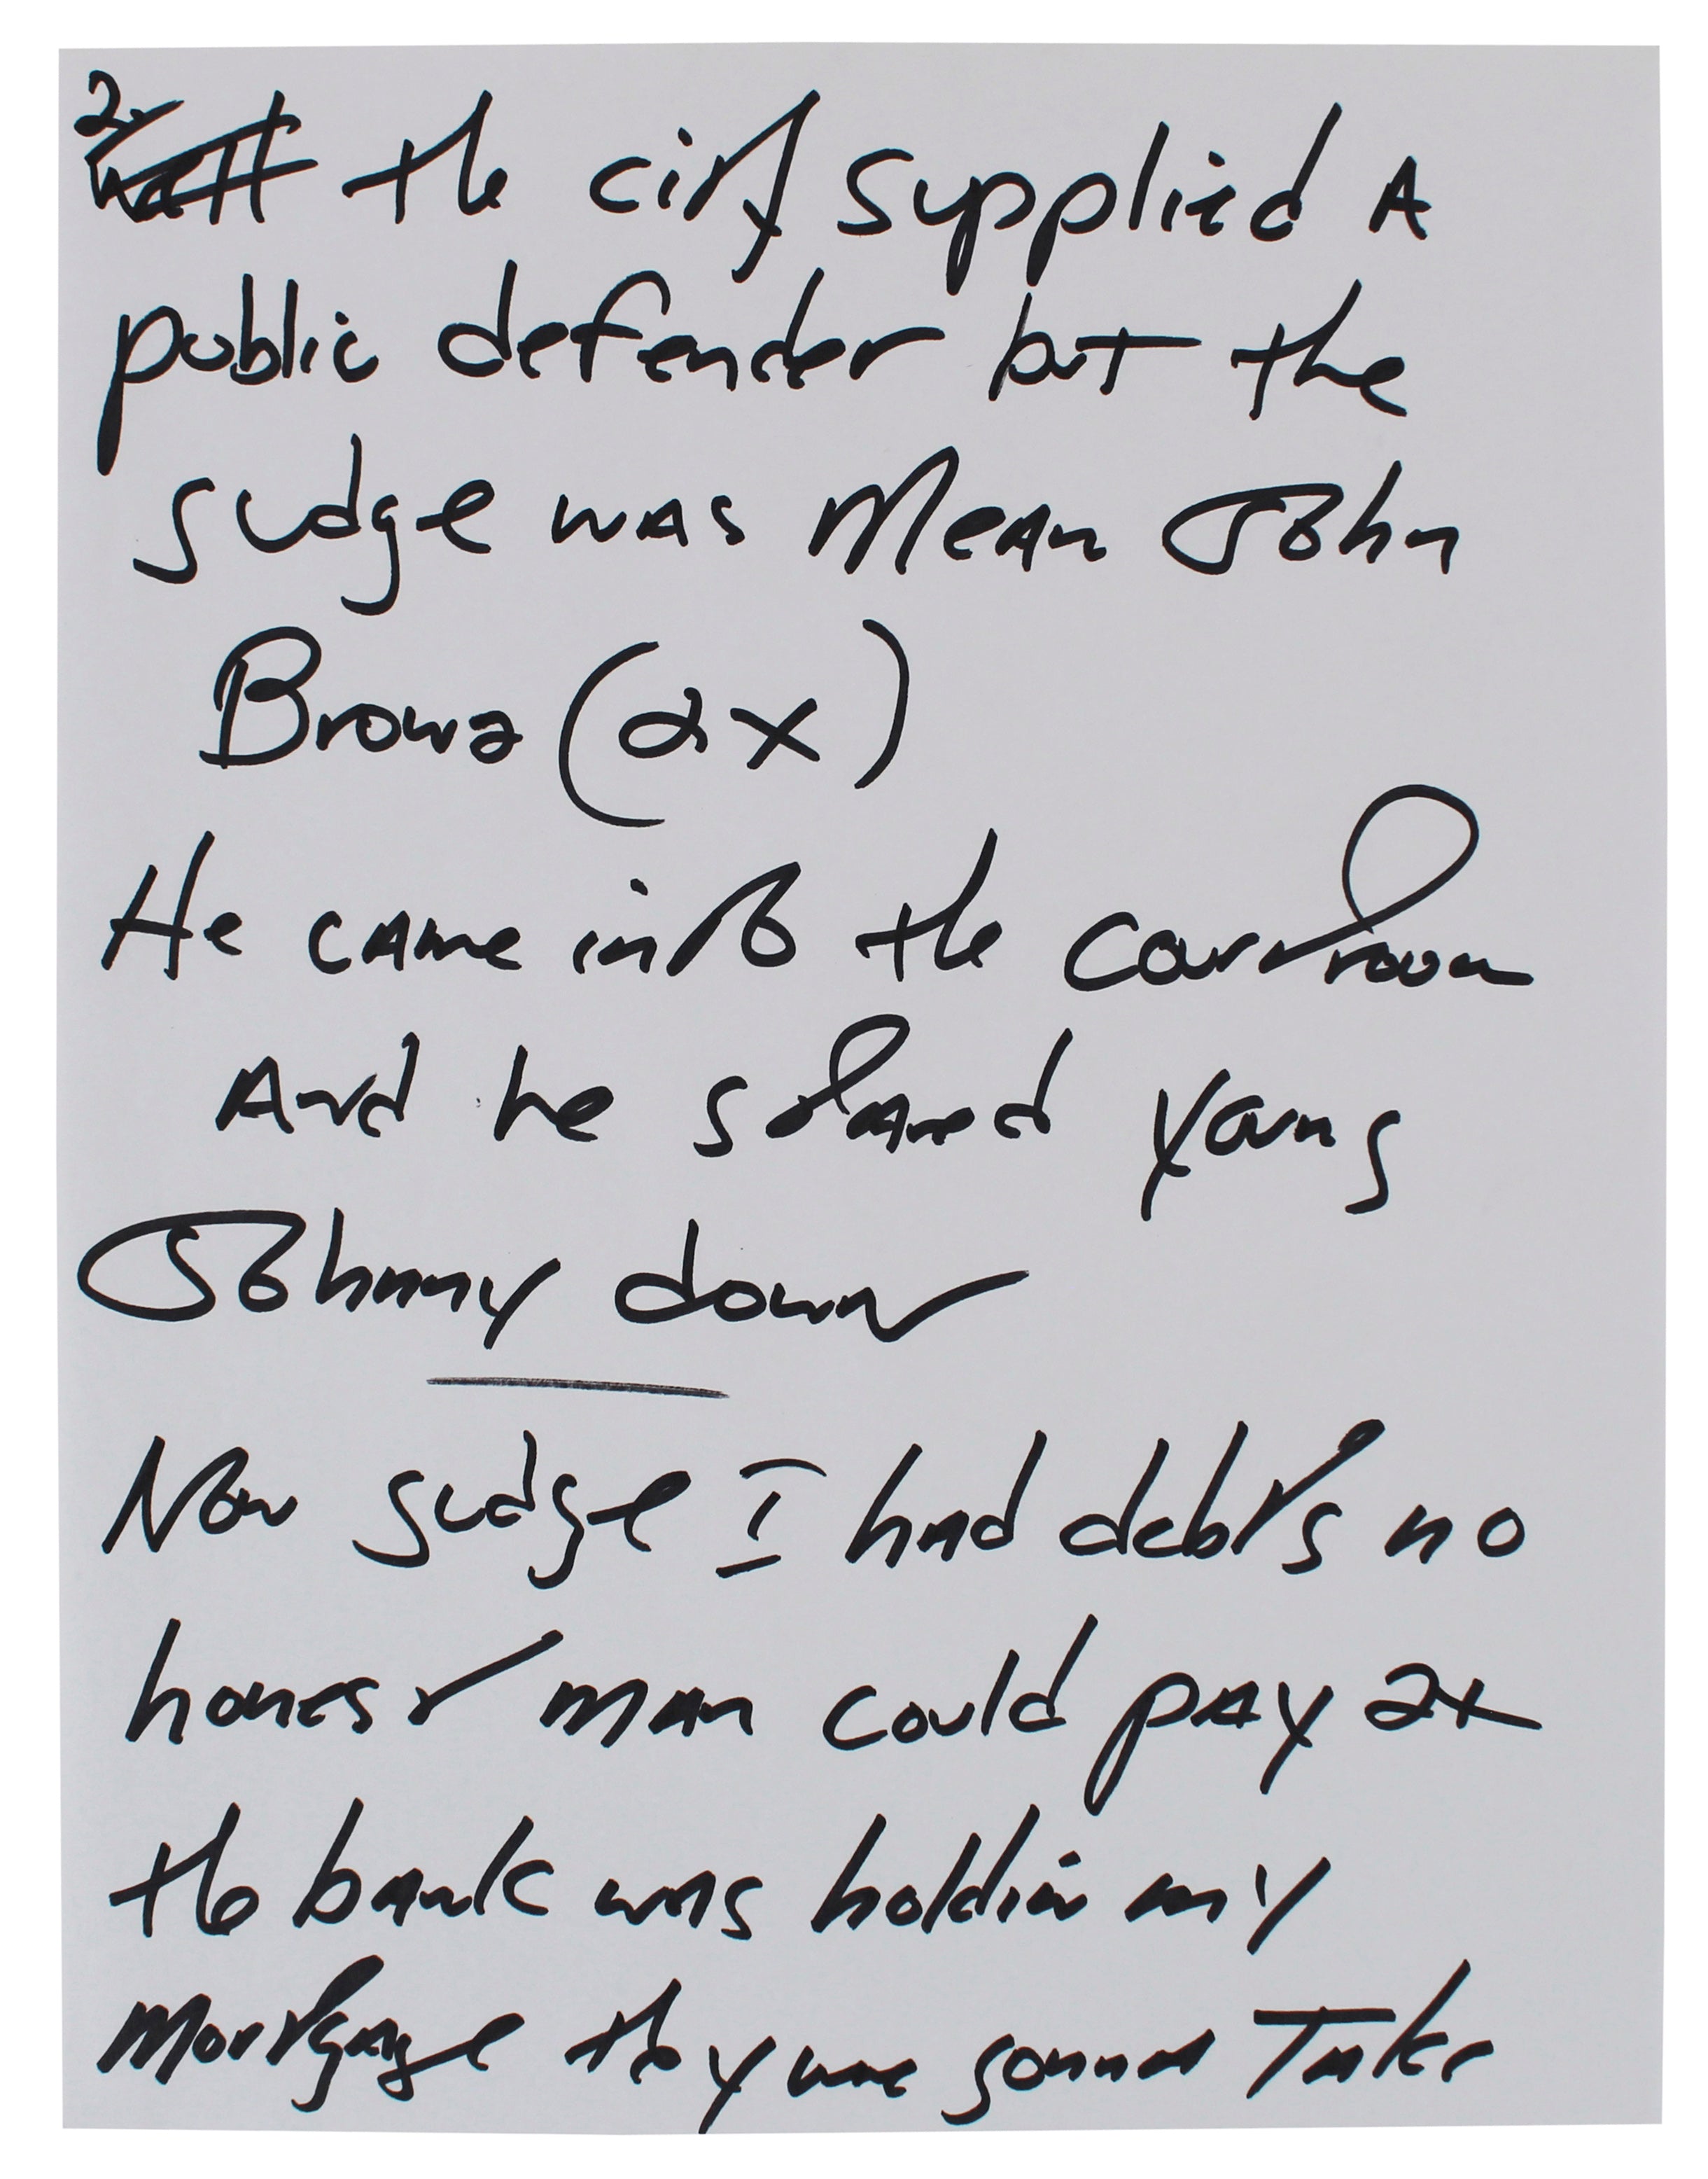 2. Well the city supplied A
public defender but the
judge was Mean John
Brown (2x)
He came into the courtroom
And he stared young
Johnny down
Now judge I had debts no
honest man could pay 2x
the bank was holdin my
Mortgage they were gonna Take